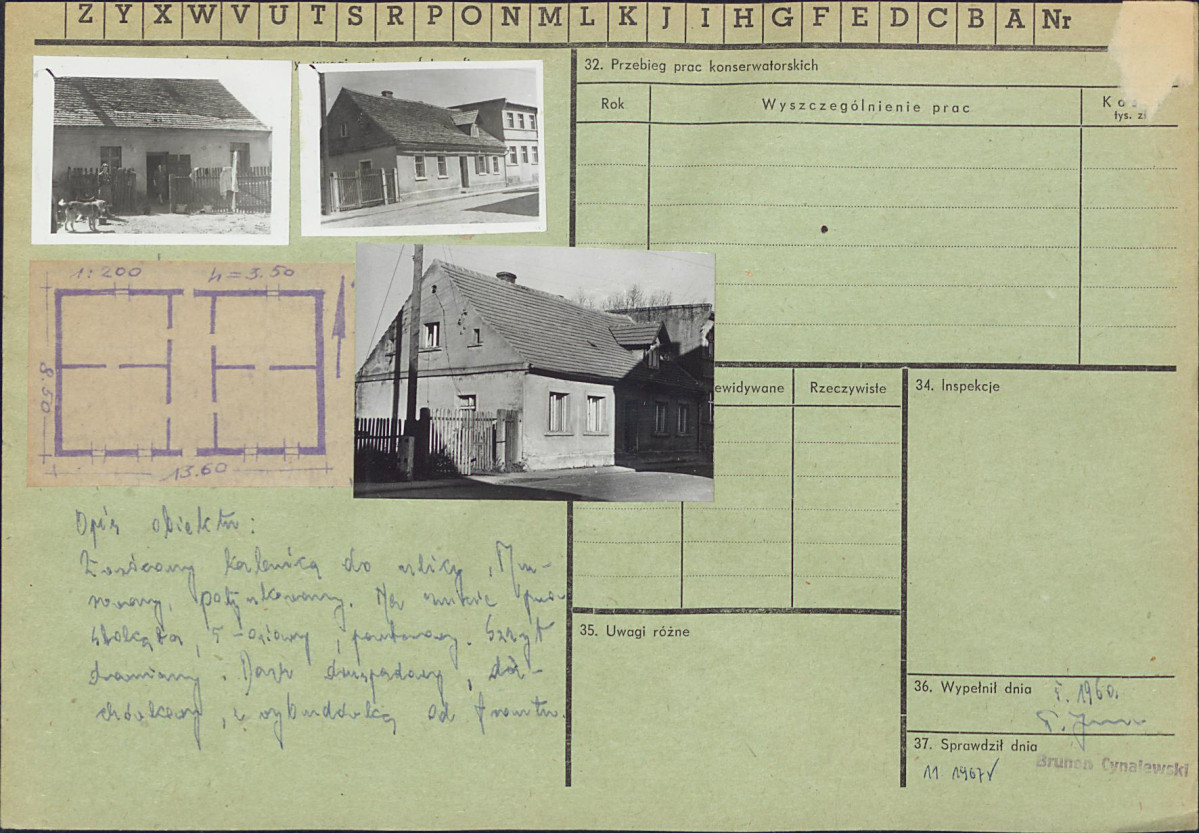 Z Y X W V U T S R P O N M L K J I H G F E D C B A Nr
32. Przebieg prac konserwatorskich
Rok
Wyszczególnienie prac
tys. zł
1:200 h=3.50
8.50
13.60
ewidywane
Rzeczywiste
34. Inspekcje
Opis obiektu:
do ulicy, Mu-
rowany, potynkowany. Na rzucie pro-
stokąta, 5-osiowy, parterowy. Szczyt
drewniany. Dach dwuspadowy, da-
chówkowy, z wybudówką od frontu.
35. Uwagi różne
36. Wypełnił dnia V. 1960.
37. Sprawdził dnia
11 1967
Brunon Cynalewski